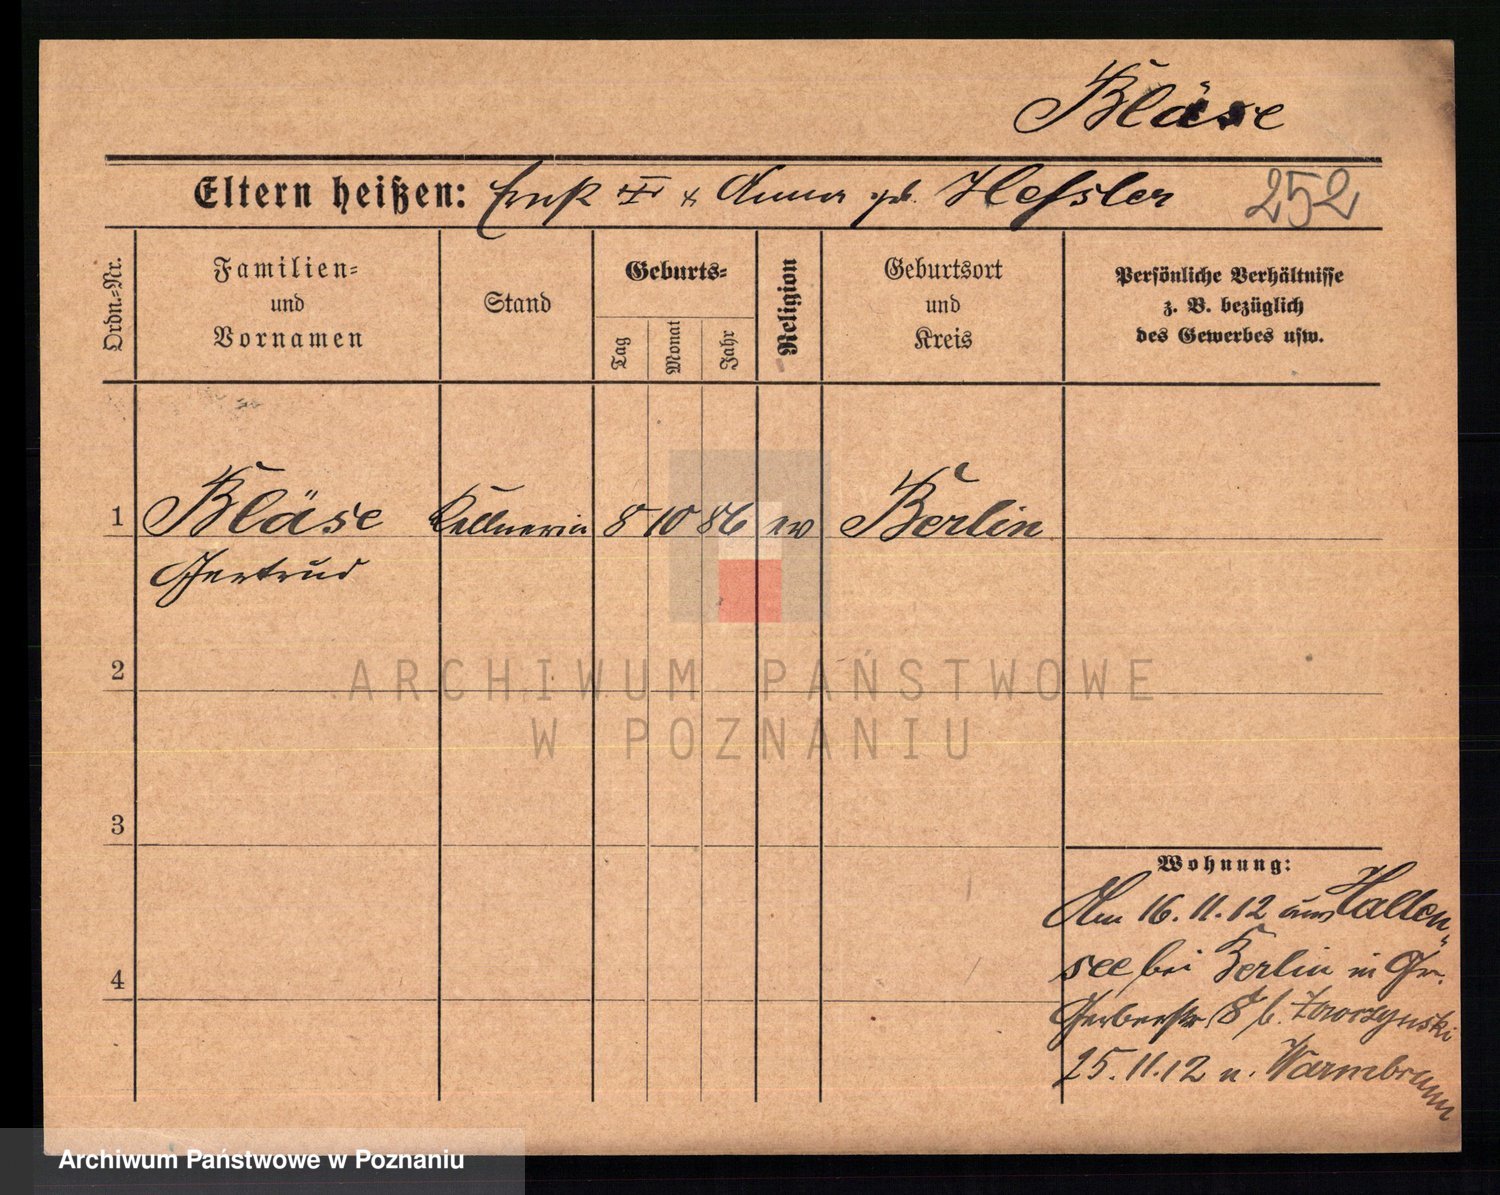 Bläse
Eltern heißen: Ernst + Anna geb. Hessler 252
Ordn.-Nr.
Familien-
und
Vornamen
Stand
Geburts-
Tag
Monat
Jahr
Religion
Geburtsort
und
Kreis
Persönliche Verhältnisse
z. B. bezüglich
des Gewerbes usw.
1 Bläse Kellnerin 8 10 86 ev Berlin
Gertrud
2
3
4
Wohnung:
Am 16.11.12 aus Hallen-
see bei Berlin in Gr.
Gerberstr 8 b.
25.11.12 n. Warmbrunn
ARCHIWUM PAŃSTWOWE
W POZNANIU
Archiwum Państwowe w Poznaniu